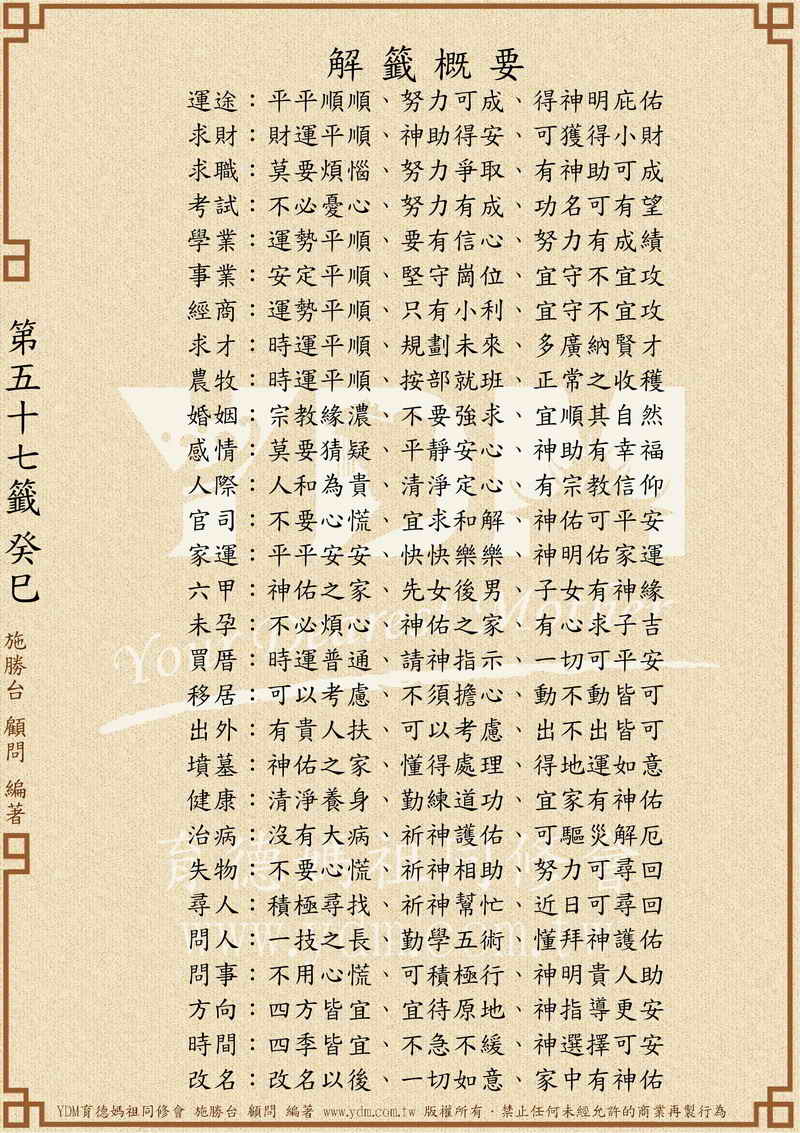 解籤概要
運途：平平順順、努力可成、得神明庇佑
求財：財運平順、神助得安、可獲得小財
求職：莫要煩惱、努力爭取、有神助可成
考試：不必憂心、努力有成、功名可有望
學業：運勢平順、要有信心、努力有成績
事業：安定平順、堅守崗位、宜守不宜攻
經商：運勢平順、只有小利、宜守不宜攻
求才：時運平順、規劃未來、多廣納賢才
農牧：時運平順、按部就班、正常之收穫
婚姻：宗教緣濃、不要強求、宜順其自然
感情：莫要猜疑、平靜安心、神助有幸福
人際：人和為貴、清淨定心、有宗教信仰
官司：不要心慌、宜求和解、神佑可平安
家運：平平安安、快快樂樂、神明佑家運
六甲：神佑之家、先女後男、子女有神緣
未孕：不必煩心、神佑之家、有心求子吉
買厝：時運普通、請神指示、一切可平安
移居：可以考慮、不須擔心、動不動皆可
出外：有貴人扶、可以考慮、出不出皆可
墳墓：神佑之家、懂得處理、得地運如意
健康：清淨養身、勤練道功、宜家有神佑
治病：沒有大病、祈神護佑、可驅災解厄
失物：不要心慌、祈神相助、努力可尋回
尋人：積極尋找、祈神幫忙、近日可尋回
問人：一技之長、勤學五術、懂拜神護佑
問事：不用心慌、可積極行、神明貴人助
方向：四方皆宜、宜待原地、神指導更安
時間：四季皆宜、不急不緩、神選擇可安
改名：改名以後、一切如意、家中有神佑
第五十七籤 癸巳
施勝台 顧問 編著
YDM
Your Dearest Mother
育德媽祖同修會
www.ydm.com.tw
YDM育德媽祖同修會 施勝台 顧問 編著 www.ydm.com.tw 版權所有‧禁止任何未經允許的商業再製行為